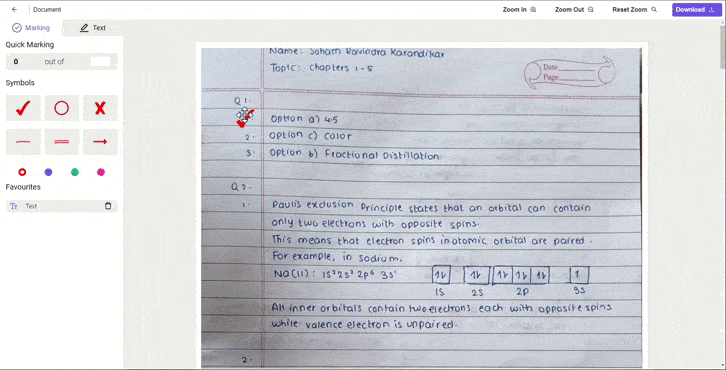 Document
Zoom In
Zoom Out
Reset Zoom
Download
Marking
Text
Quick Marking
0 out of
Symbols
Favourites
Tr Text
Name: Soham Ravindra Karandikar
Topic: Chapters 1-5
Date
Page
Q 1.
Option a) 4.5
2. Option c) Color
3. Option b) Fractional Distillation
Q 2.
1. Paulis exclusion Principle states that an orbital can contain
only two electrons with opposite spins.
This means that electron spins in atomic orbital are paired.
For example, in sodium,
Na(11): 1s² 2s² 2p⁶ 3s¹
1S 2S 2P 3S
All inner orbitals contain two electrons each with opposite spins
while valence electron is unpaired.
2.